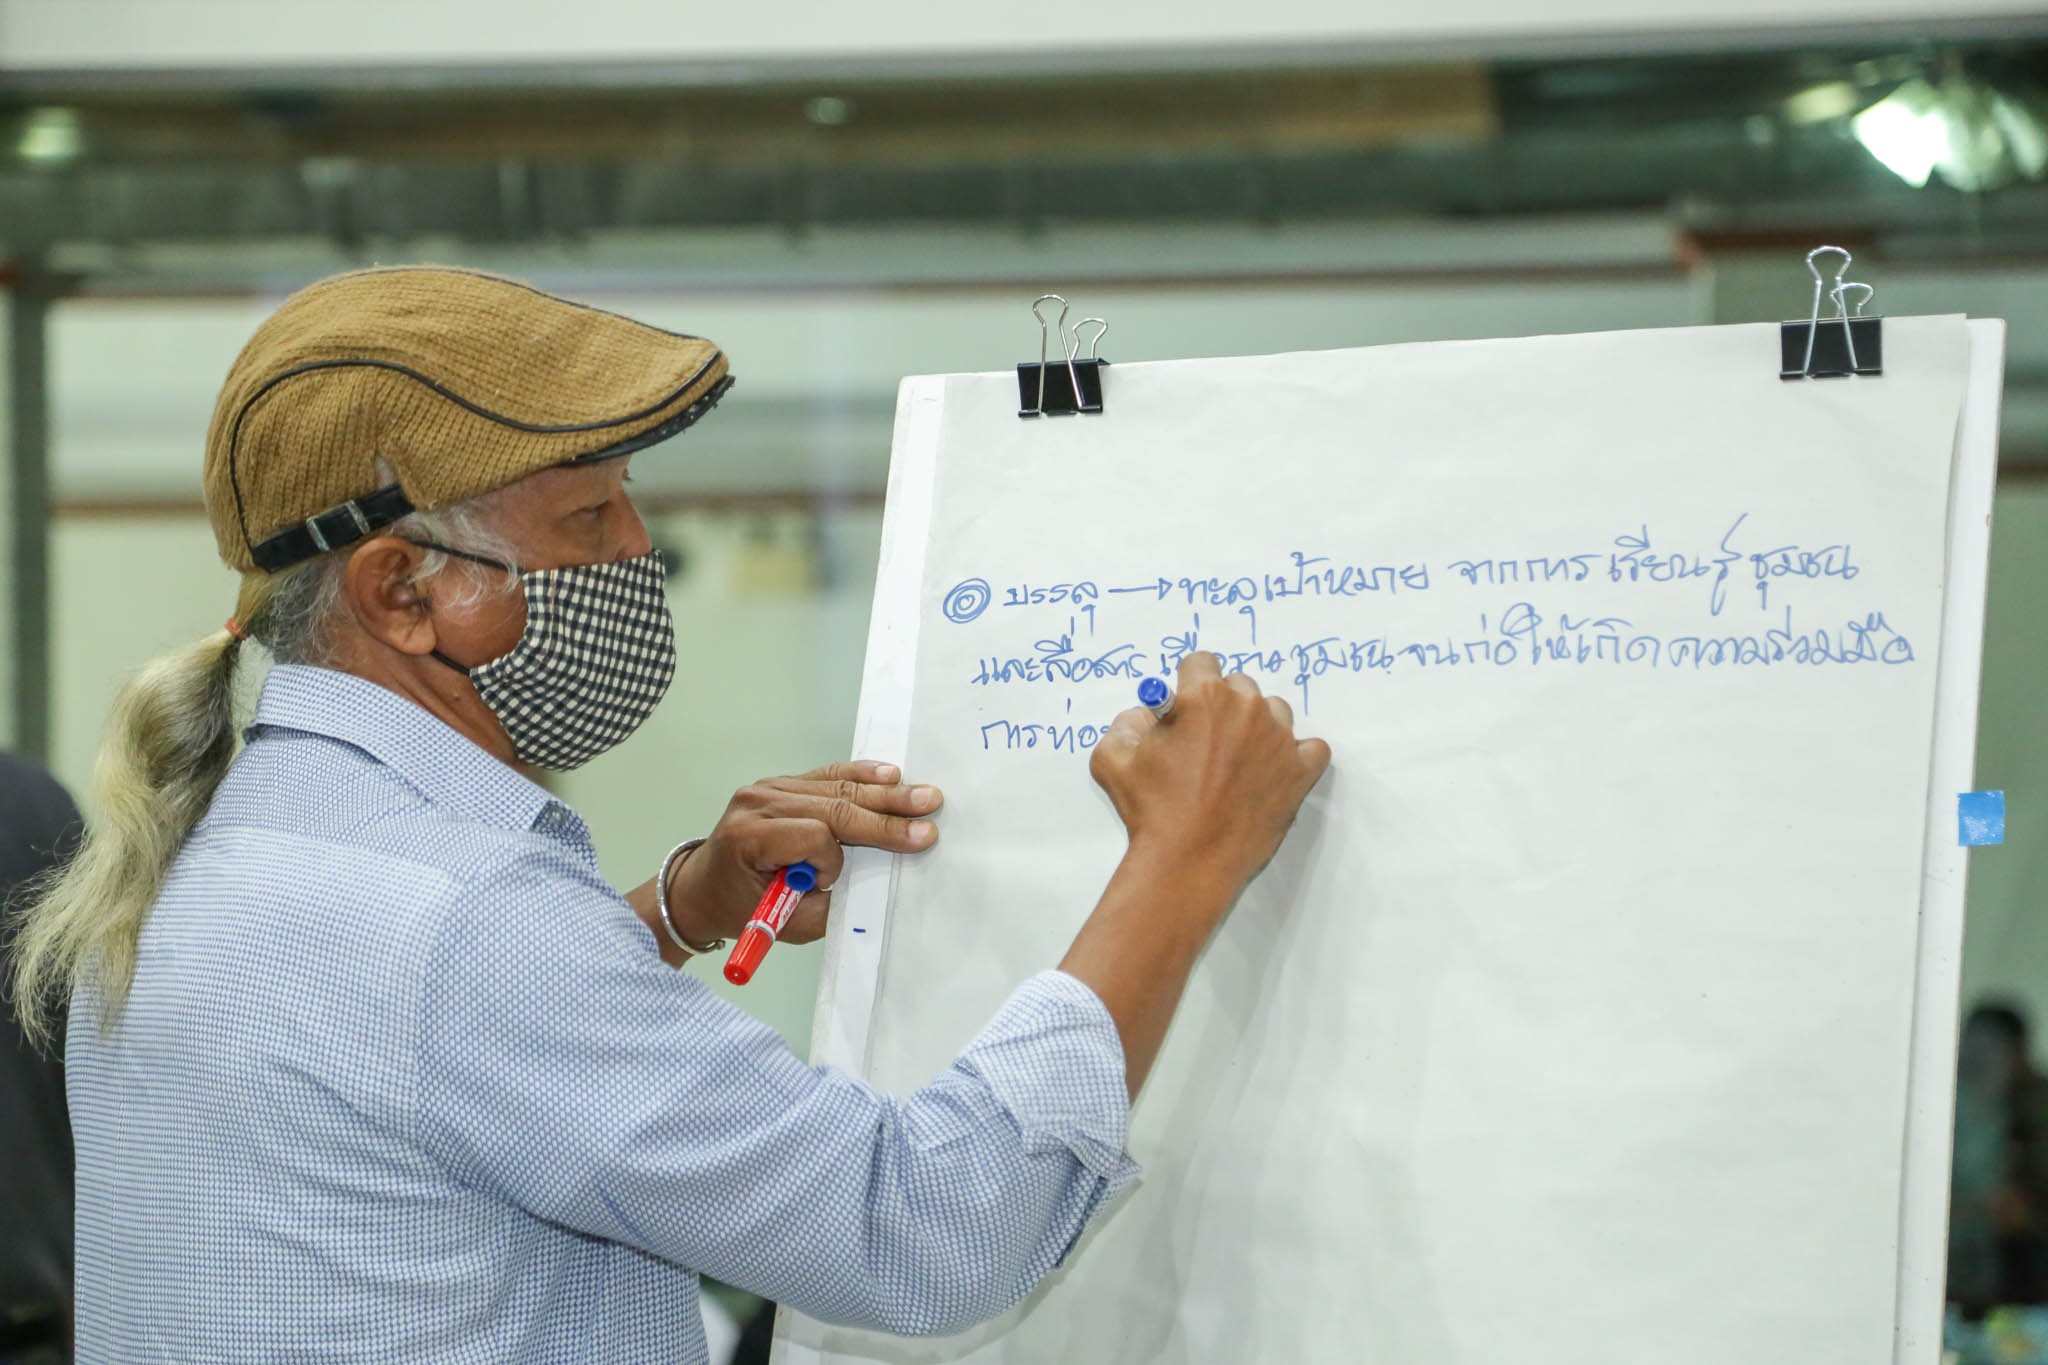 บรรลุ → ทะลุเป้าหมาย จากการเรียนรู้ชุมชน
และสื่อสารเรื่องราวชุมชน จนก่อให้เกิดความร่วมมือ
การท่อง